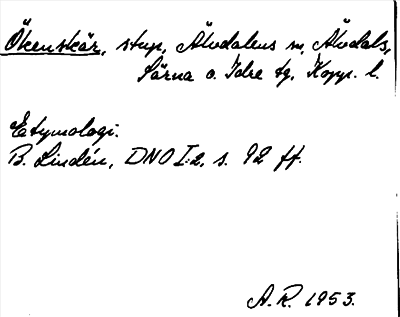 Ökenskär, stup, Älvdalens sn, Älvdals,
Särna o. Idre tg, Kopp. l.
Etymologi.
B. Lindén, DNO I:2, s. 92 ff.
A.R. 1953.